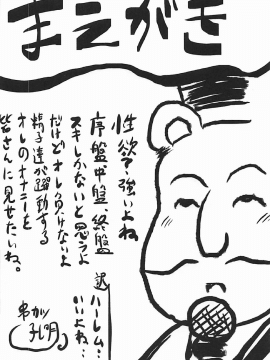 まえがき
性欲?強いよね
序盤中盤終盤
スキしかないと思うよ
だけどオレ負けないよ
精子達が躍動する
オレのオナニーを
皆さんに見せたいね。
逆ハーレム…
いいよね…
串カツ
孔明